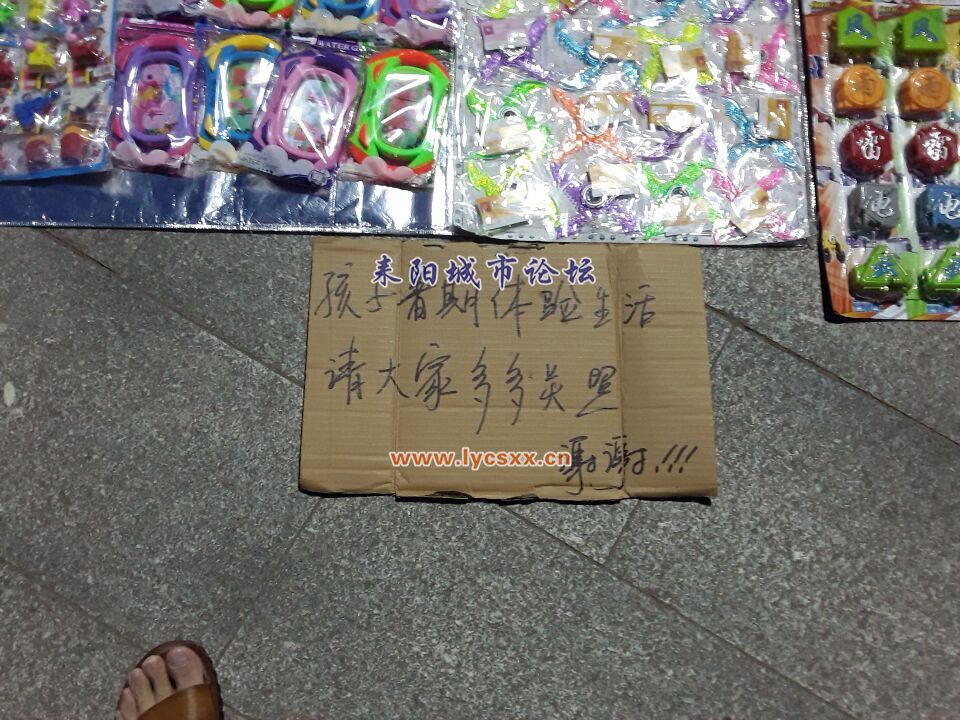 WATER
风 风
雷 雷
电 电
耒阳城市论坛
孩子暑期体验生活
请大家多多关照
www.lycsxx.cn
谢谢!!!